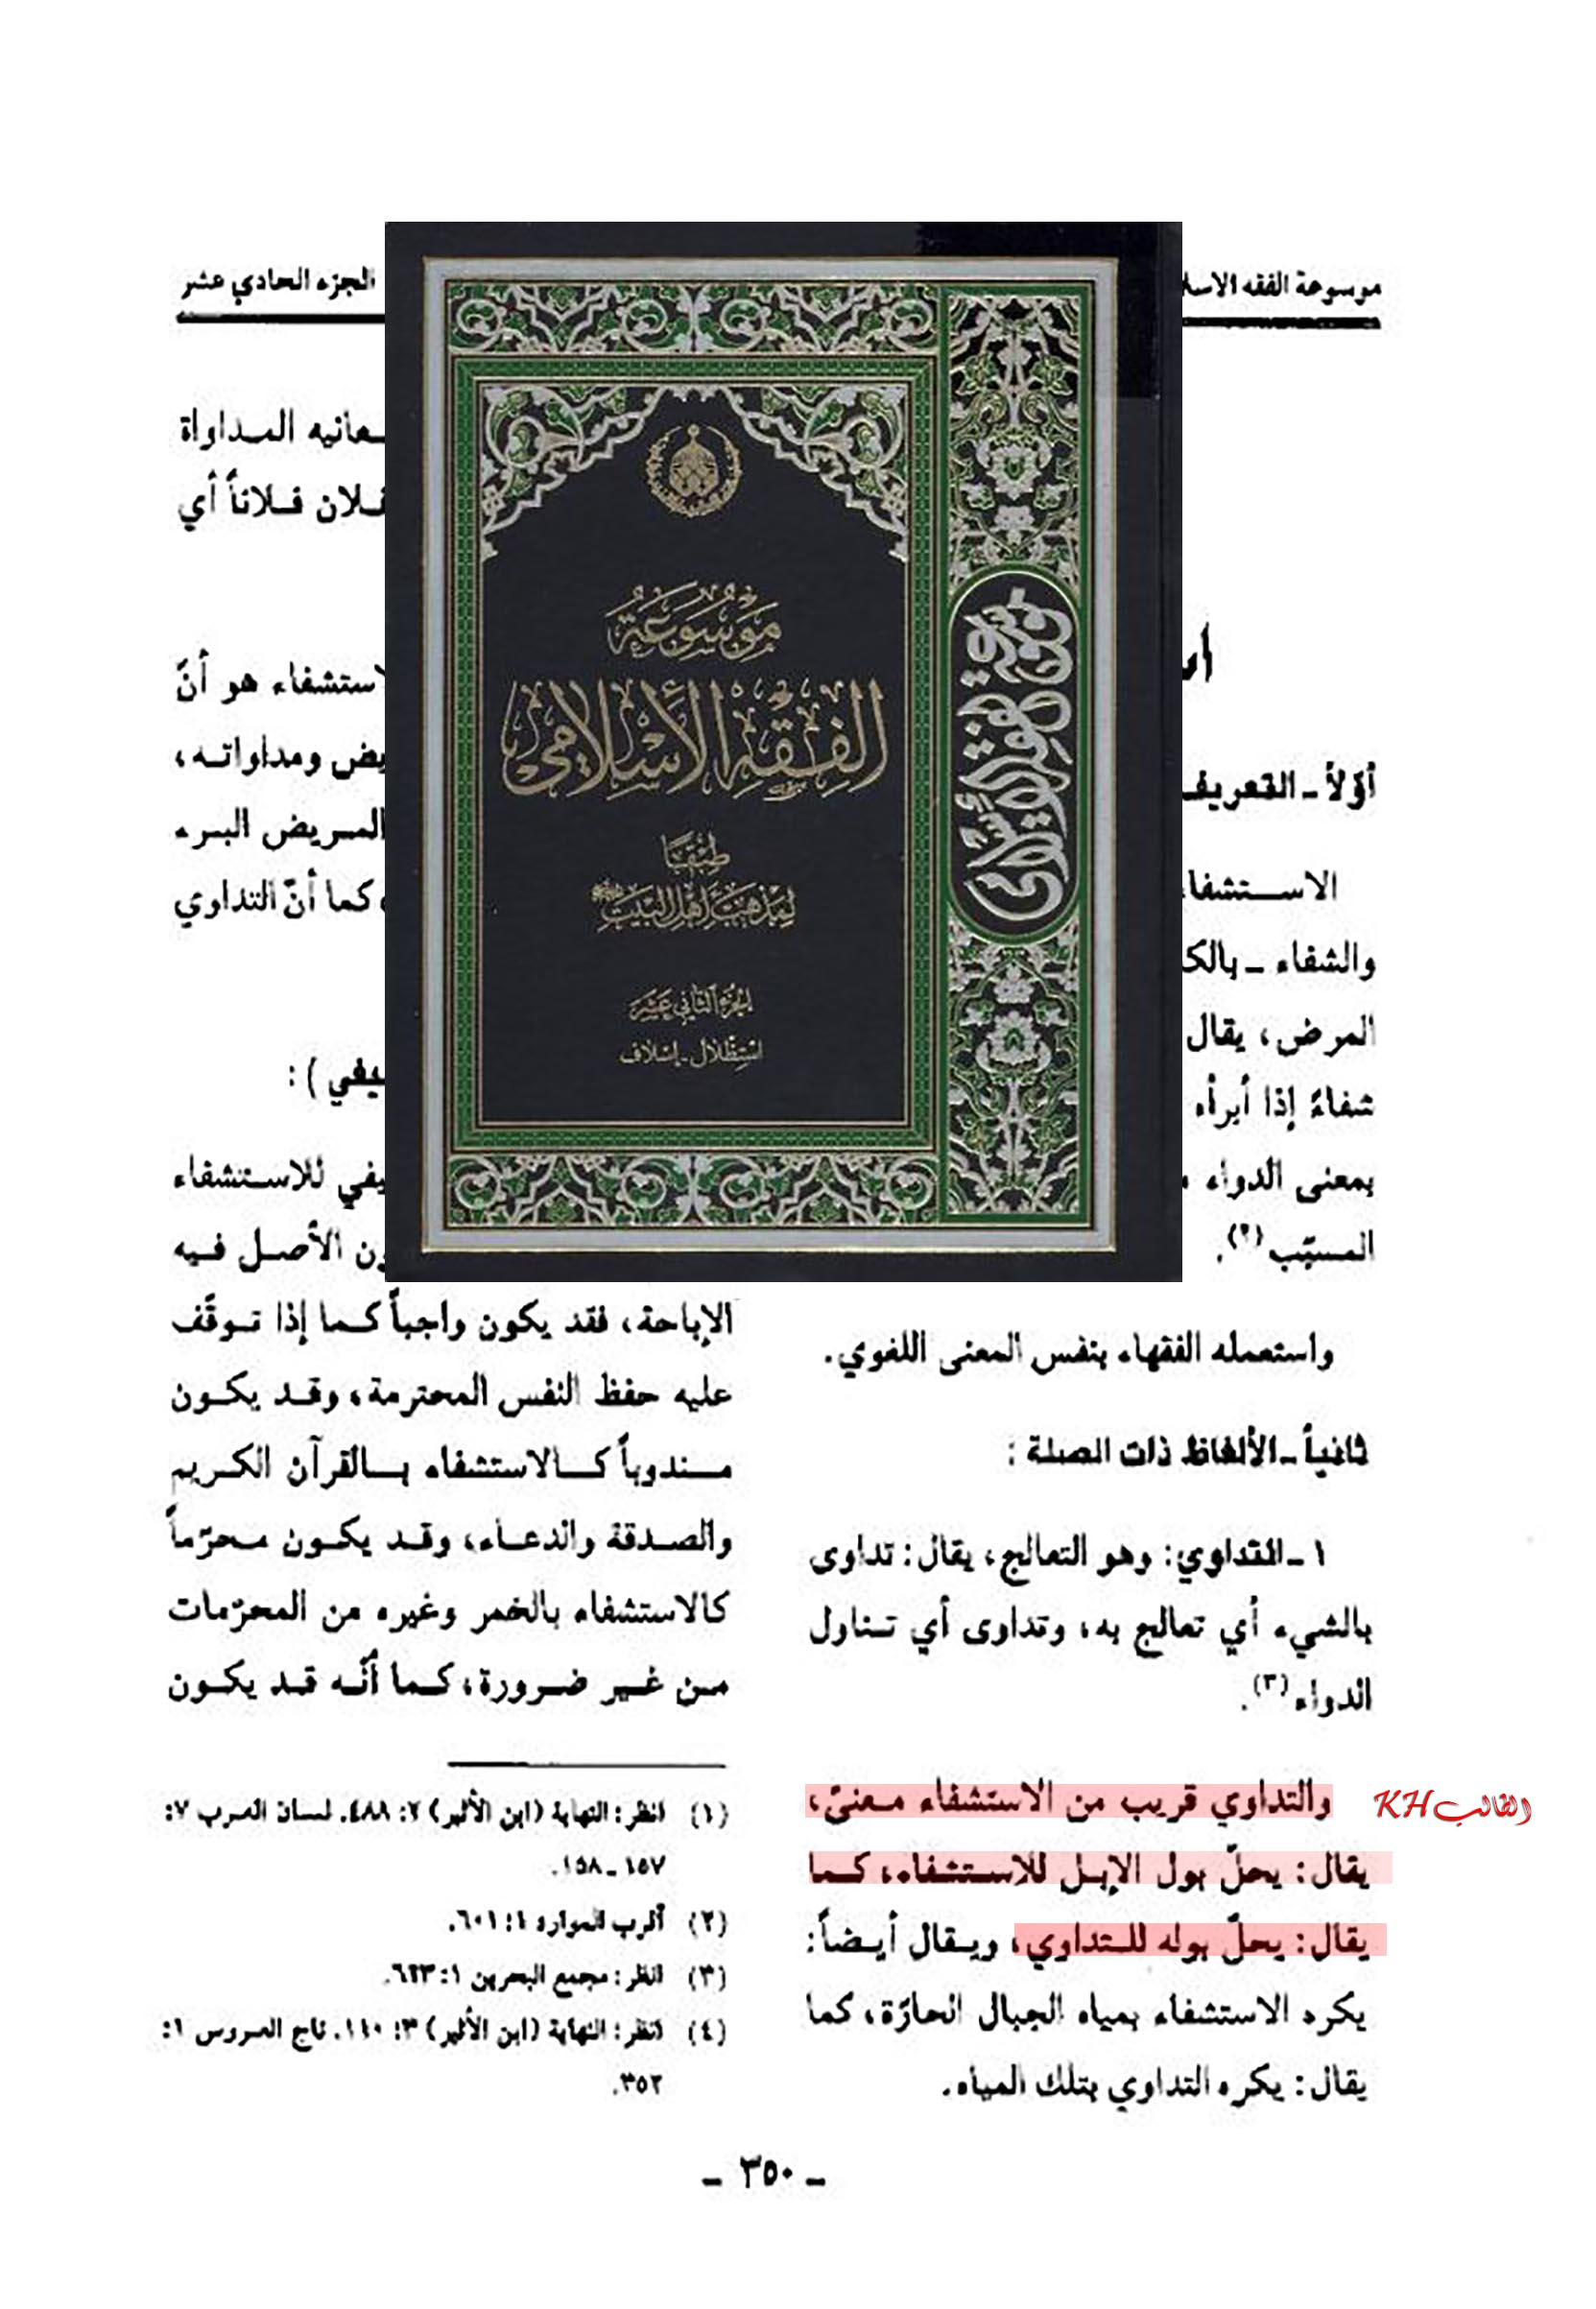 موسوعة الفقه
الجزء الحادي عشر
أوّلاً ـ التعريف
والشفاء ـ
المرض، يقال
شفاءً إذا أبرأه
بمعنى الدواء
المسبّب (٢).
واستعمله الفقهاء بنفس المعنى اللغوي.
ثانياً ـ الألفاظ ذات الصلة :
١ ـ التداوي: وهو التعالج، يقال: تداوى
بالشيء أي تعالج به، وتداوى أي تناول
الدواء (٣).
والتداوي قريب من الاستشفاء معنىً،
يقال: يحلّ بول الإبل للاستشفاء، كما
يقال: يحلّ بوله للتداوي، ويقال أيضاً:
يكره الاستشفاء بمياه الجبال الحارّة، كما
يقال: يكره التداوي بتلك المياه.
المداواة
فلان فلاناً أي
هو أنّ
ومداواته،
المريض البرء
كما أنّ التداوي
للاستشفاء
الأصل فيه
الإباحة، فقد يكون واجباً كما إذا توقّف
عليه حفظ النفس المحترمة، وقد يكون
مندوباً كالاستشفاء بالقرآن الكريم
والصدقة والدعاء، وقد يكون محرّماً
كالاستشفاء بالخمر وغيره من المحرّمات
من غير ضرورة، كما أنّه قد يكون
(١) انظر: النهاية (ابن الأثير) ٢: ٤٨٨. لسان العرب ٧:
١٥٧ ـ ١٥٨.
(٢) أقرب الموارد ١: ٦٠١.
(٣) انظر: مجمع البحرين ١: ٦٢٣.
(٤) انظر: النهاية (ابن الأثير) ٣: ١١٠. تاج العروس ١:
٣٥٢.
ـ ٣٥٠ ـ
مَوْسُوعَة
الفِقْهِ الإسْلامِي
طِبْقًا
لِمَذْهَبِ أَهْلِ البَيْتِ
الجُزْءُ الثَّانِي عَشَر
اسْتِظْلال - إسْلاف
موسوعة الفقه الإسلامي
KH